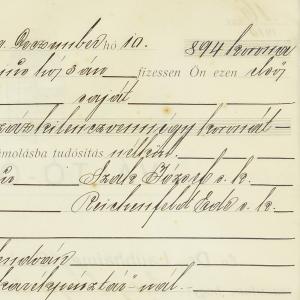 Deczember hó 10. 894 korona
hó 3 án fizessen Ön ezen első
saját
százkilenczvennégy koronát –
számolásba tudósítás nélkül.
Szák József s. k.
Reichenfeld Ede s. k.
takarékpénztár-nál.